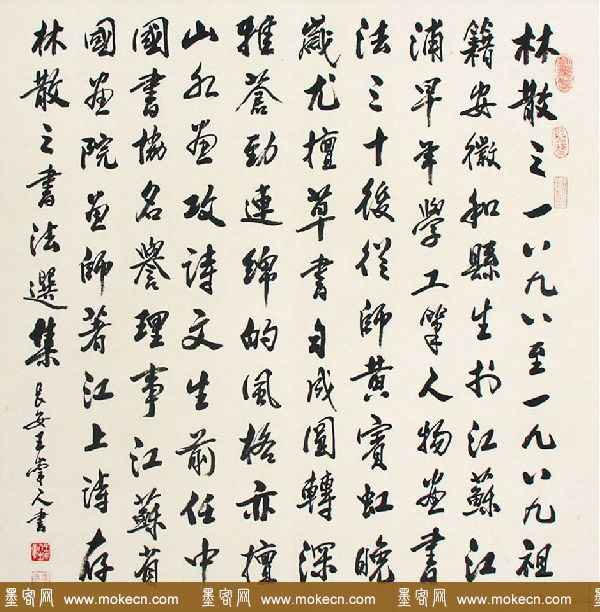 林散之一八九八至一九八九祖
籍安徽和縣生於江蘇江
浦早年學工筆人物画書
法三十後從師黄賓虹晚
歲尤擅草書自成圓轉深
雅蒼勁連綿的風格亦擅
山水画攻詩文生前任中
國書協名譽理事江蘇省
國画院画師著江上詩存
林散之書法選集
長安王人書
墨客网 www.mokecn.com 墨客网 www.mokecn.com 墨客网 www.mokecn.com 墨客网 www.mokecn.com